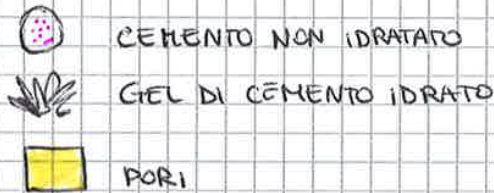 CEMENTO NON IDRATATO
GEL DI CEMENTO IDRATO
PORI